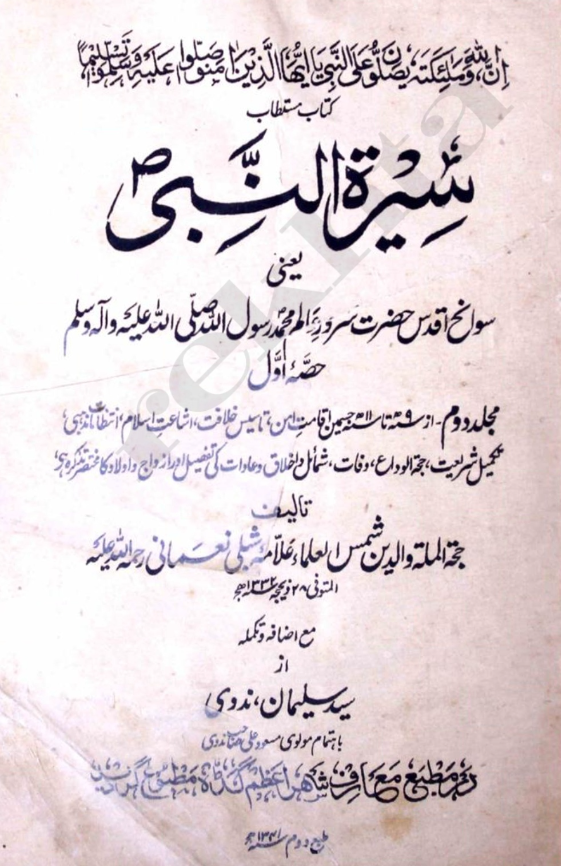 ان الله وملئكته يصلون على النبي يا ايها الذين امنوا صلوا عليه وسلموا تسليما
کتاب مستطاب
سِیرۃ النَّبی ؐ
یعنی
سوانح اقدس حضرت سرورِ عالم محمدؐ رسول اللہ صلی اللہ علیہ وآلہ وسلم
حصۂ اوّل
مجلد دوم - از سنہ ۹ھ تا سنہ ۱۱ھ جسمین اقامتِ امن، تاسیس خلافت، اشاعتِ اسلام، انتظامات مذہبی،
تکمیل شریعت، حجۃ الوداع، وفات، شمائل و اخلاق وعادات کی تفصیل اور ازواج و اولاد کا مختصر تذکرہ ہی،
تالیف
حجۃ الملۃ والدین شمس العلماء علامہ شبلی نعمانی رحمۃ اللہ علیہ
المتوفی ۲۸ ذیحجہ سنہ ۱۳۳۲ھ
مع اضافہ و تکملہ
از
سید سلیمان، ندوی
باہتمام مولوی مسعود علی صاحب ندوی
در مطبع معارف شہر اعظم گڈہ مطبوع گردید
طبع دوم سنہ ۱۳۴۱ھ
rekhta